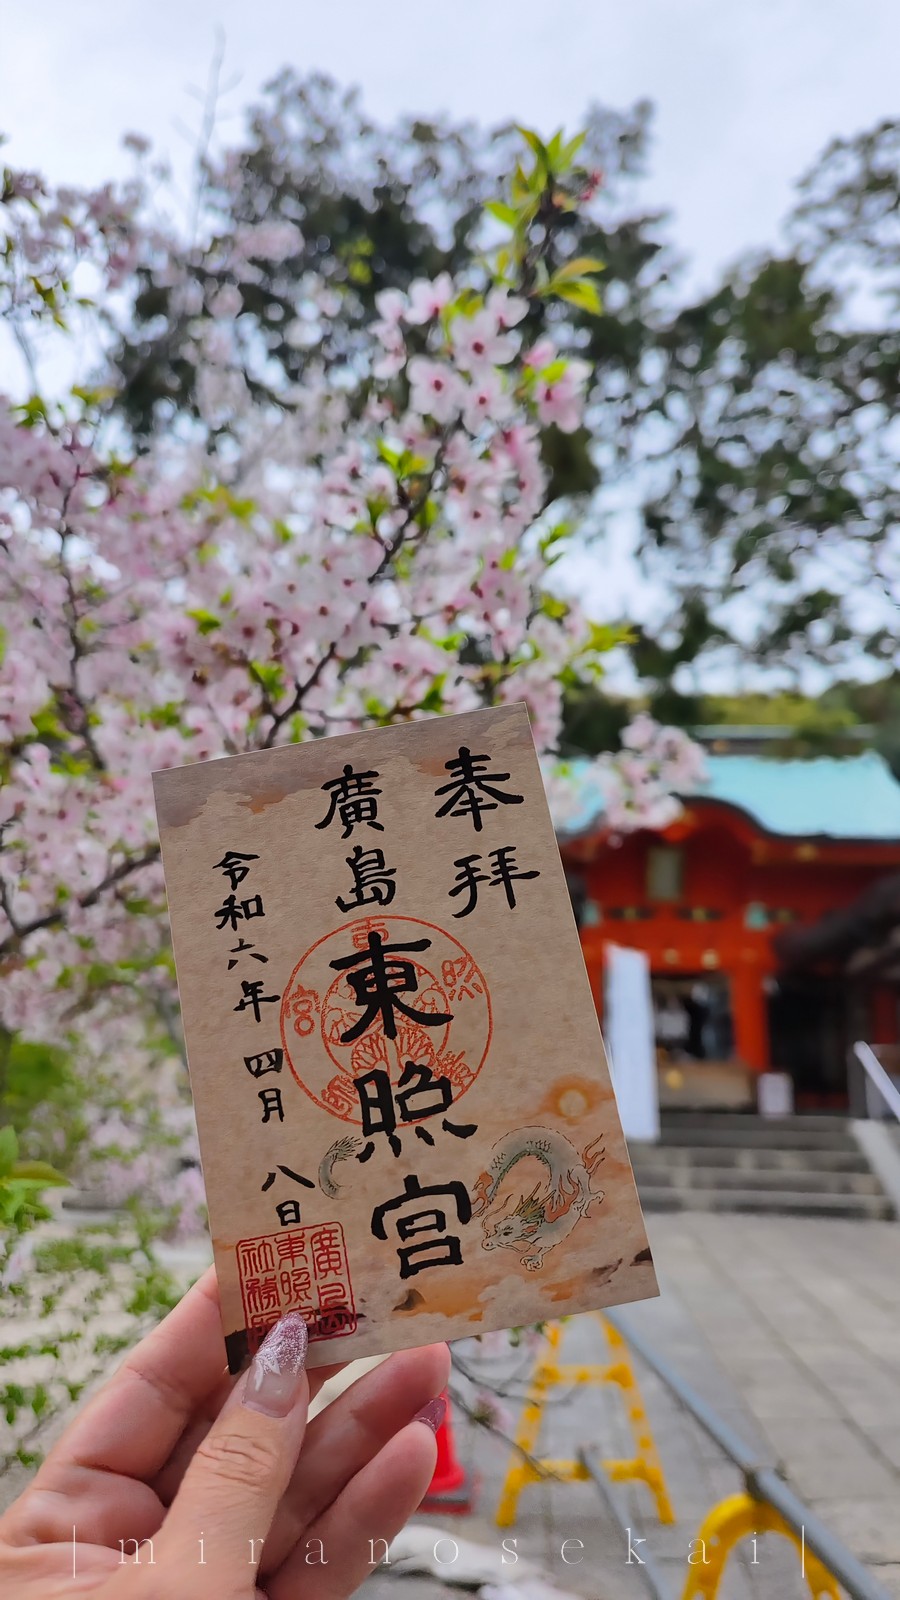 奉拝
廣島
東照宮
令和六年 四月 八日
東照宮
廣島
東照宮
社務所
|miranosekai|